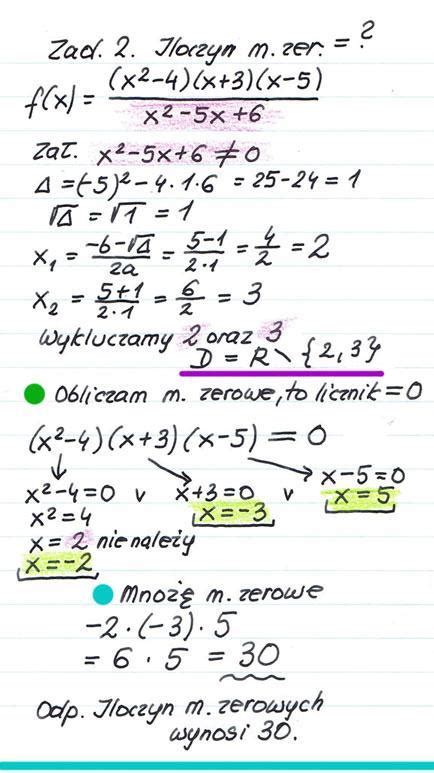 Zad. 2. Iloczyn m. zer. = ?
f(x) = (x²-4)(x+3)(x-5) / x²-5x+6
Zał. x²-5x+6 ≠ 0
Δ = (-5)² - 4·1·6 = 25-24 = 1
√Δ = √1 = 1
x₁ = -b-√Δ / 2a = 5-1 / 2·1 = 4/2 = 2
x₂ = 5+1 / 2·1 = 6/2 = 3
Wykluczamy 2 oraz 3
D = R \ {2,3}
Obliczam m. zerowe, to licznik = 0
(x²-4)(x+3)(x-5) = 0
x²-4=0 v x+3=0 v x-5=0
x²=4 x=-3 x=5
x = 2 nie należy
x=-2
Mnożę m. zerowe
-2·(-3)·5
= 6·5 = 30
Odp. Iloczyn m. zerowych
wynosi 30.